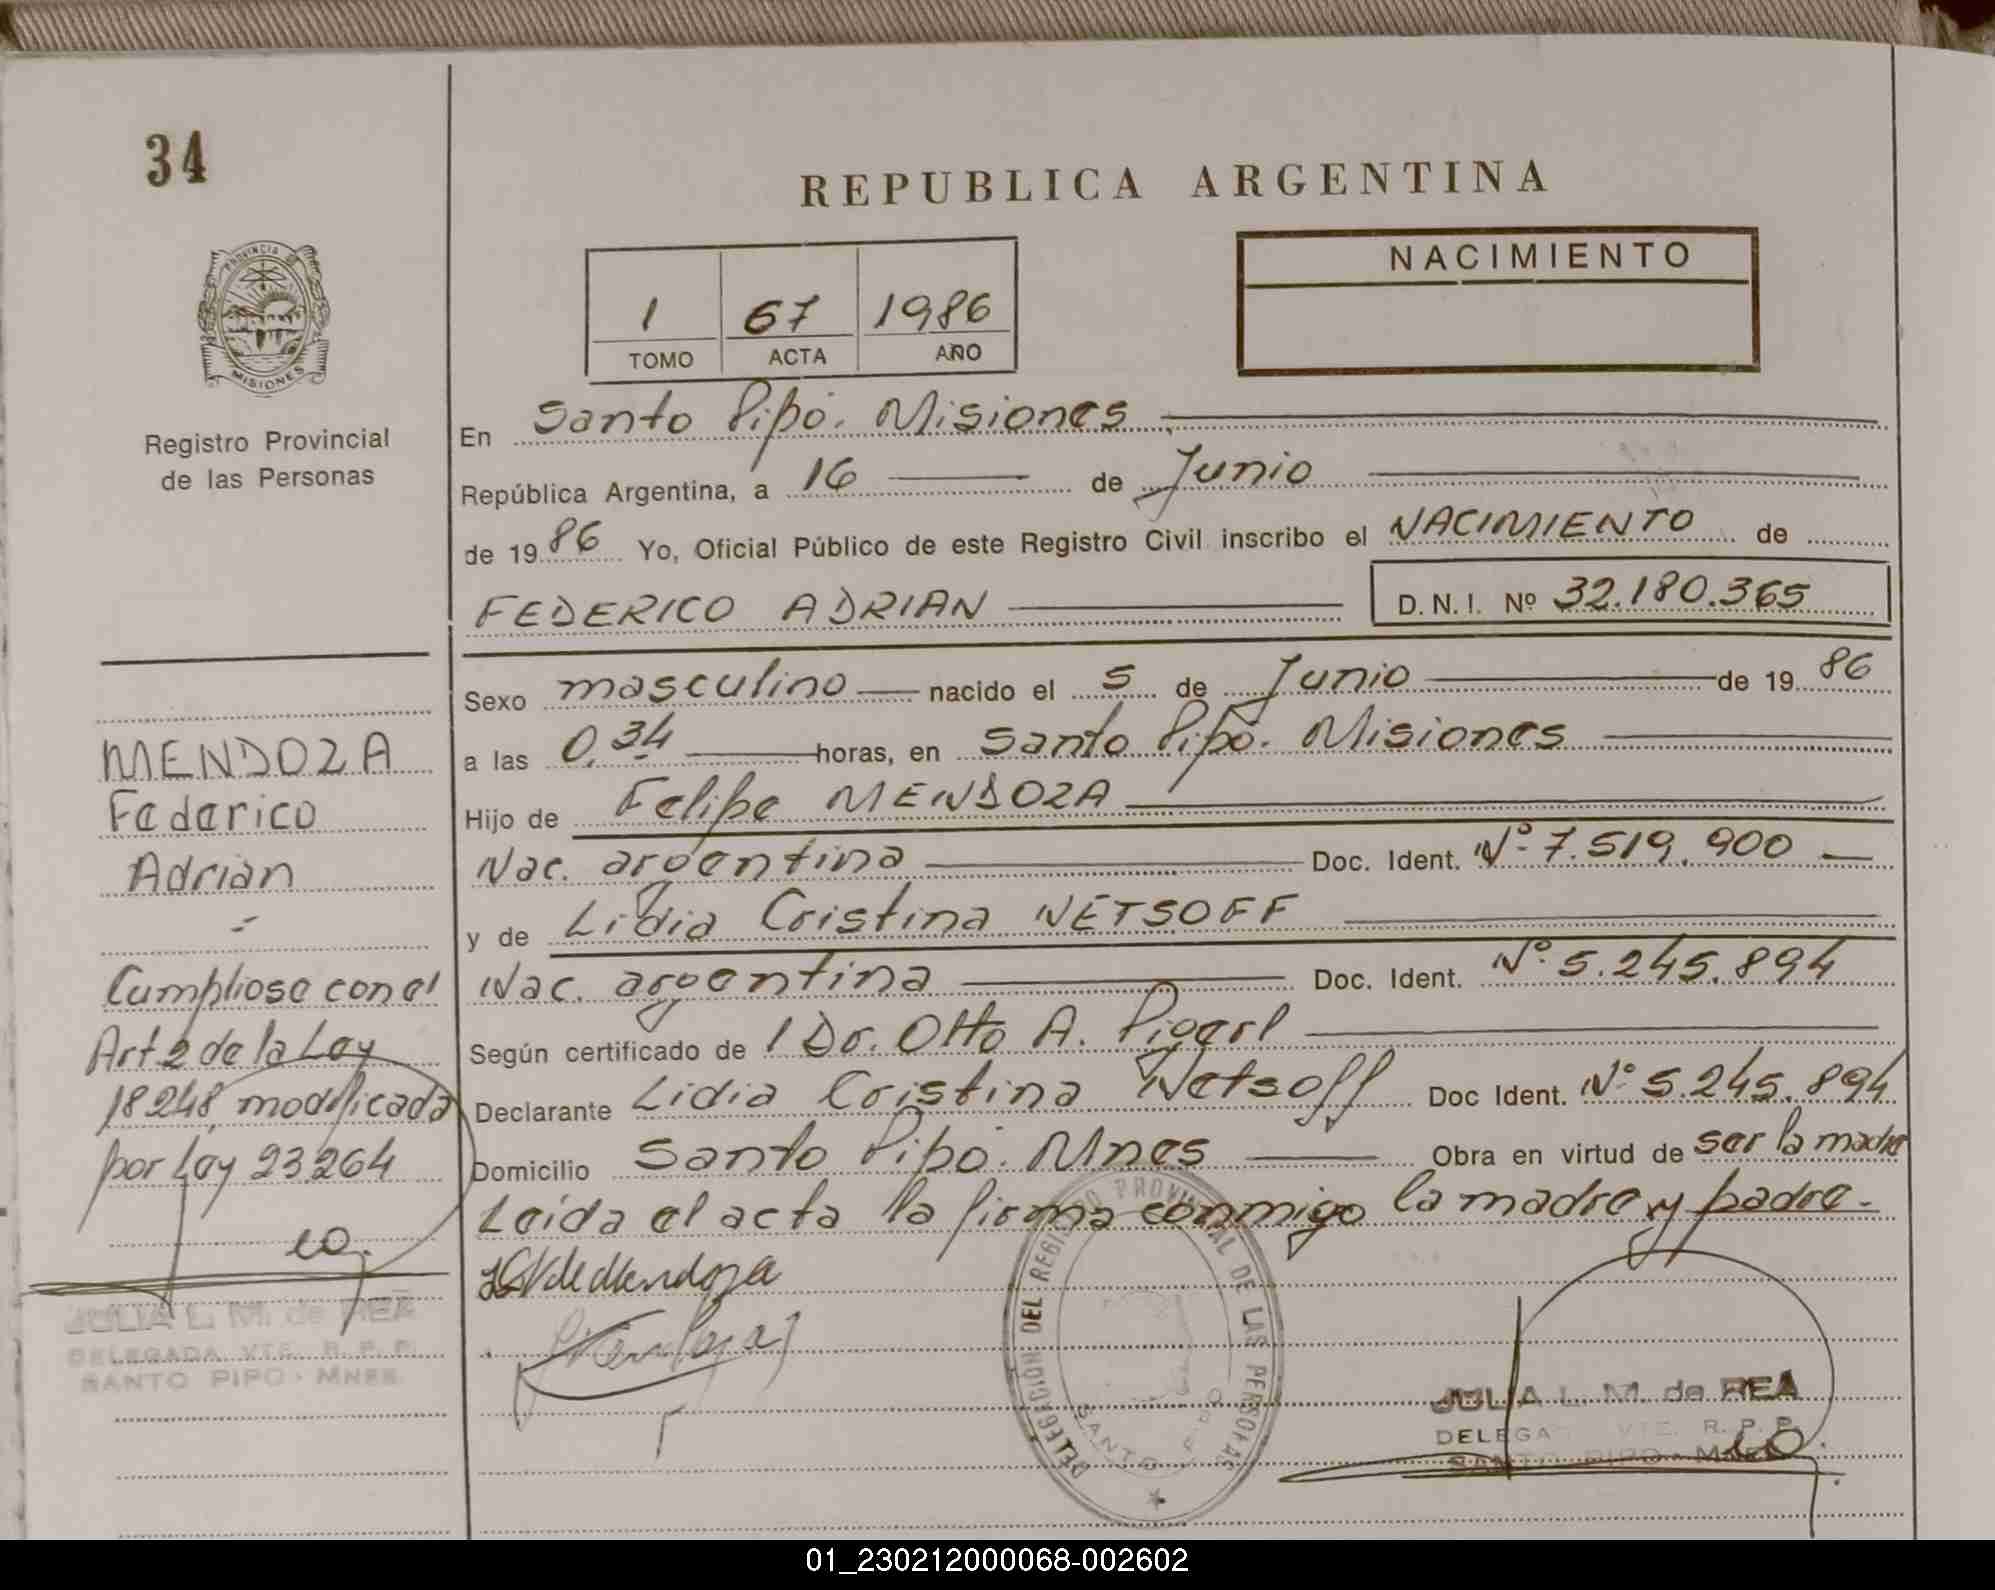 34
REPUBLICA ARGENTINA
PROVINCIA DE
MISIONES
Registro Provincial
de las Personas
NACIMIENTO
1 67 1986
TOMO ACTA AÑO
En Santo Pipó. Misiones
República Argentina, a 16 de Junio
de 19 86 Yo, Oficial Público de este Registro Civil inscribo el NACIMIENTO de
FEDERICO ADRIAN D.N.I. Nº 32.180.365
Sexo masculino nacido el 5 de Junio de 19 86
a las 0,34 horas, en Santo Pipó. Misiones
Hijo de Felipe MENDOZA
Nac. argentina Doc. Ident. Nº 7.519.900
y de Lidia Cristina NETSOFF
Nac. argentina Doc. Ident. Nº 5.245.894
Según certificado de l Dr. Otto A.
Declarante Lidia Cristina Netsoff Doc Ident. Nº 5.245.894
Domicilio Santo Pipó. Mnes Obra en virtud de ser la madre
Leída el acta la firma conmigo la madre y padre.
MENDOZA
Federico
Adrián
Cumpliose con el
Art. 2 de la Ley
18248, modificada
por Ley 23.264
JULIA L. M. de REA
DELEGADA VTE. R. P. P.
SANTO PIPO - MNES.
de Mendoza
DELEGACION DEL REGISTRO PROVINCIAL DE LAS PERSONAS
SANTO PIPO
JULIA L. M. de REA
DELEGA VTE. R. P. P.
SANTO PIPO - MNES.
01_230212000068-002602